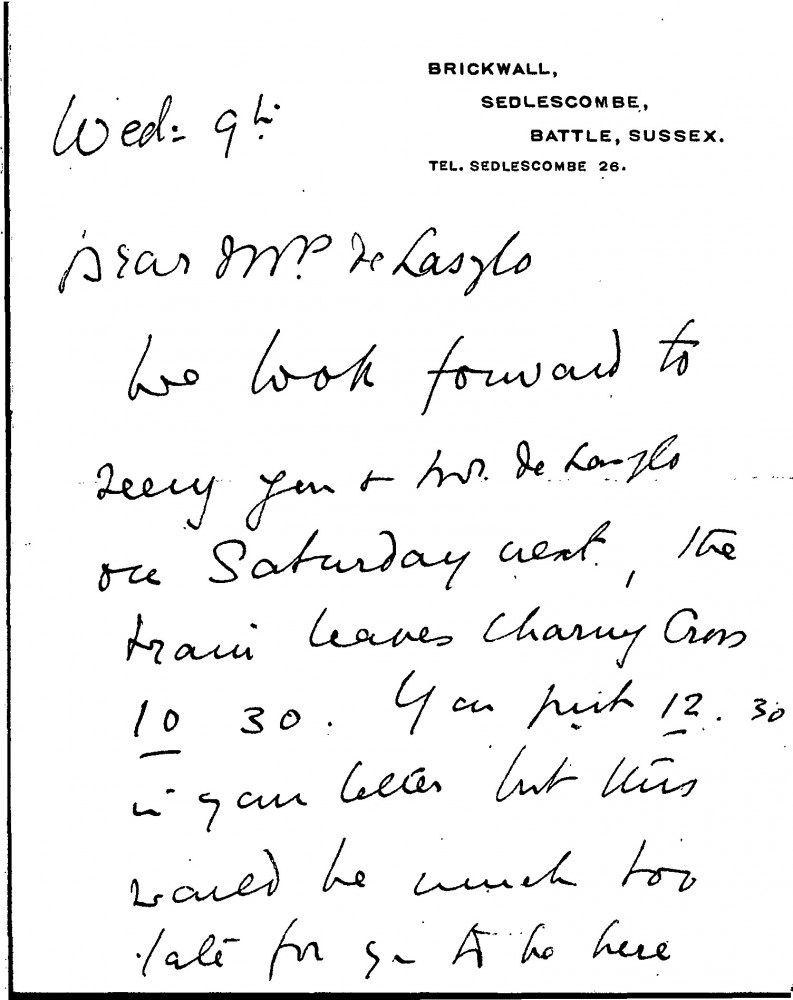 BRICKWALL,
SEDLESCOMBE,
BATTLE, SUSSEX.
TEL. SEDLESCOMBE 26.
Wed: 9th
Dear Mr. de Laszlo
We look forward to
seeing you + Mrs. de Laszlo
on Saturday next, the
train leaves Charing Cross
10 30. You put 12.30
in your letter but this
would be much too
late for you to be here